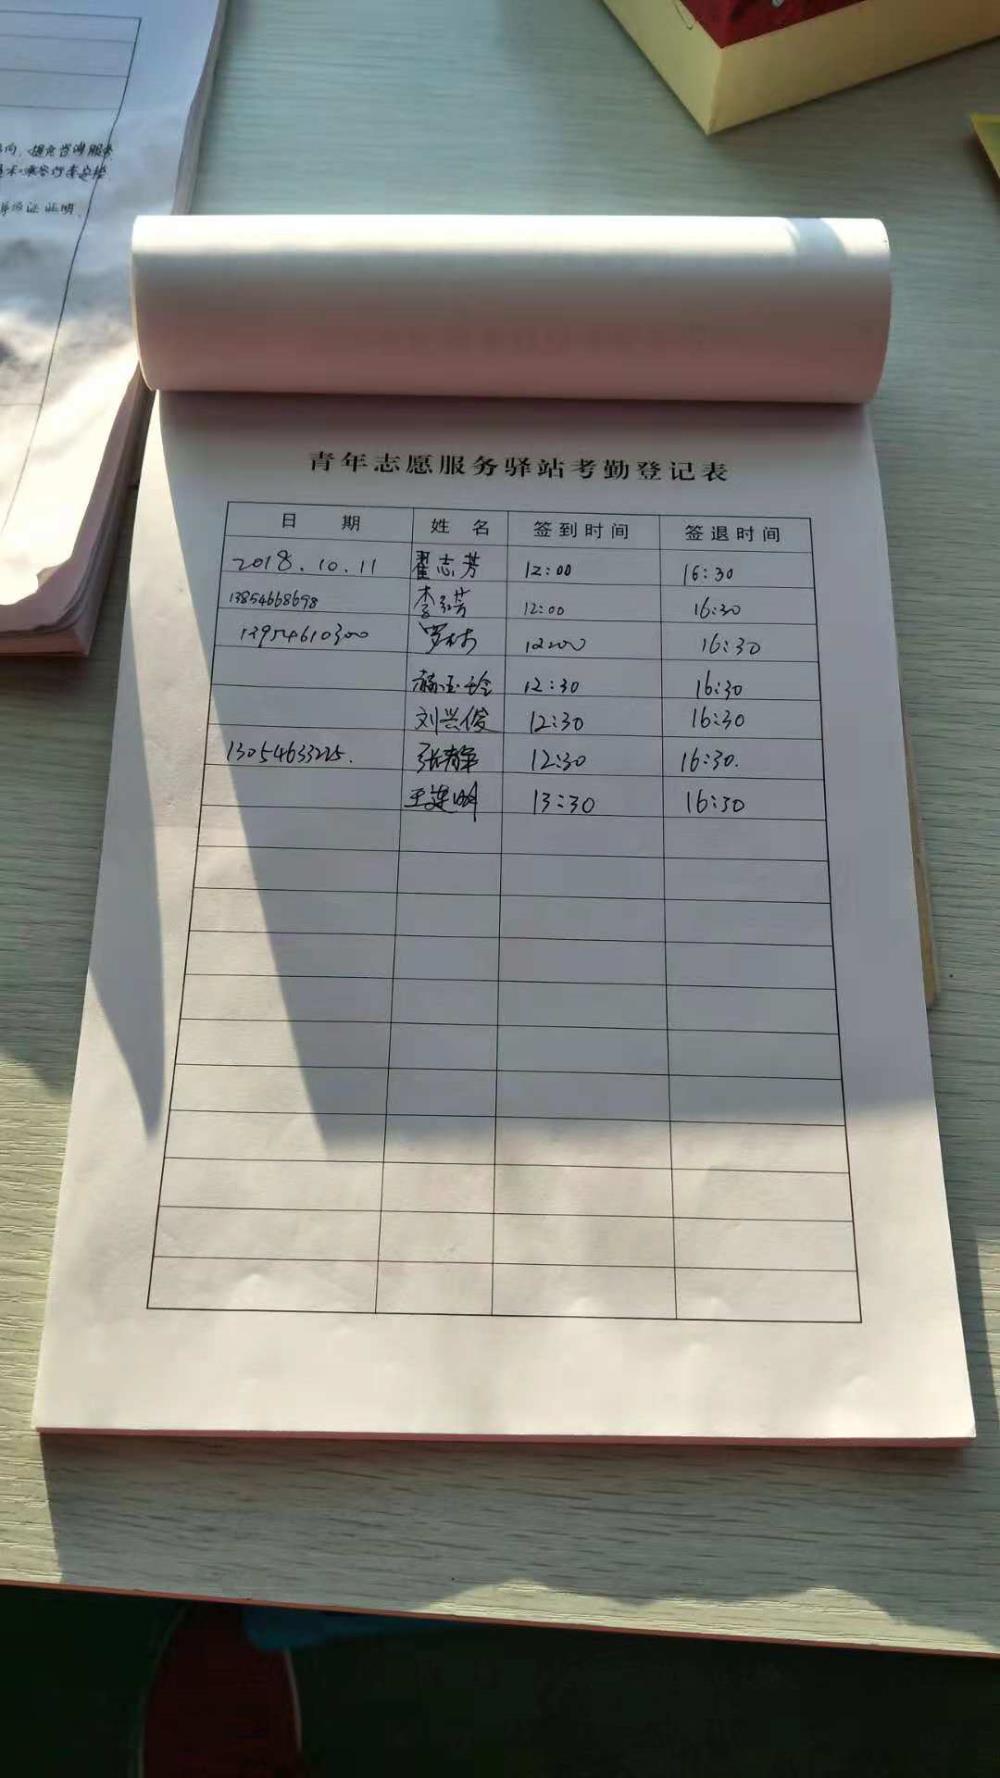 向,提充咨询服务
青年志愿服务驿站考勤登记表
日 期 姓 名 签到时间 签退时间
2018.10.11 翟志芳 12:00 16:30
13854668698 12:00 16:30
13954610300 16:30
12:30 16:30
刘兴俊 12:30 16:30
13054633225. 张春军 12:30 16:30.
王建明 13:30 16:30